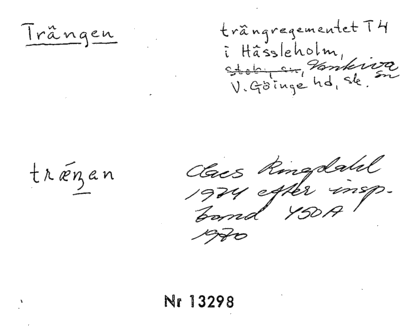 Trängen
trängregementet T4
i Hässleholm,
Vankiva sn
V. Göinge hd, sk.
trǽŋan
Claes Ringdahl
1974 efter insp.
band 450A
1970
Nr 13298